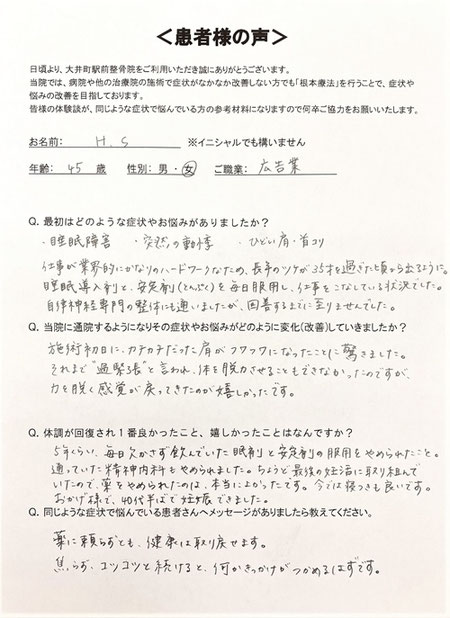 ＜患者様の声＞
日頃より、大井町駅前整骨院をご利用いただき誠にありがとうございます。
当院では、病院や他の治療院の施術で症状がなかなか改善しない方でも「根本療法」を行うことで、症状や
悩みの改善を目指しております。
皆様の体験談が、同じような症状で悩んでいる方の参考材料になりますので何卒ご協力をお願いいたします。
お名前： H.S ※イニシャルでも構いません
年齢： 45 歳 性別：男・女 ご職業： 広告業
Q. 最初はどのような症状やお悩みがありましたか？
・睡眠障害 ・突然の動悸 ・ひどい肩・首コリ
仕事が業界的にかなりのハードワークなため、長年のツケが35才を過ぎた頃から出るように。
睡眠導入剤と、安定剤(とんぷく)を毎日服用し、仕事をこなしている状況でした。
自律神経専門の整体にも通いましたが、回善するまでに至りませんでした。
Q. 当院に通院するようになりその症状やお悩みがどのように変化（改善）していきましたか？
施術初日に、カチカチだった肩がフワフワになったことに驚きました。
それまで"過緊張"と言われ、体を脱力させることもできなかったのですが、
力を脱く感覚が戻ってきたのが嬉しかったです。
Q. 体調が回復され１番良かったこと、嬉しかったことはなんですか？
5年くらい、毎日欠かさず飲んでいた眠剤と安定剤の服用をやめられたこと。
通っていた精神内科もやめられました。ちょうど最後の妊活に取り組んで
いたので、薬をやめられたのは、本当によかったです。今では寝つきも良いです。
おかげ様で、40代半ばで妊娠できました。
Q. 同じような症状で悩んでいる患者さんへメッセージがありましたら教えてください。
薬に頼らずとも、健康は取り戻せます。
焦らず、コツコツと続けると、何かきっかけがつかめるはずです。